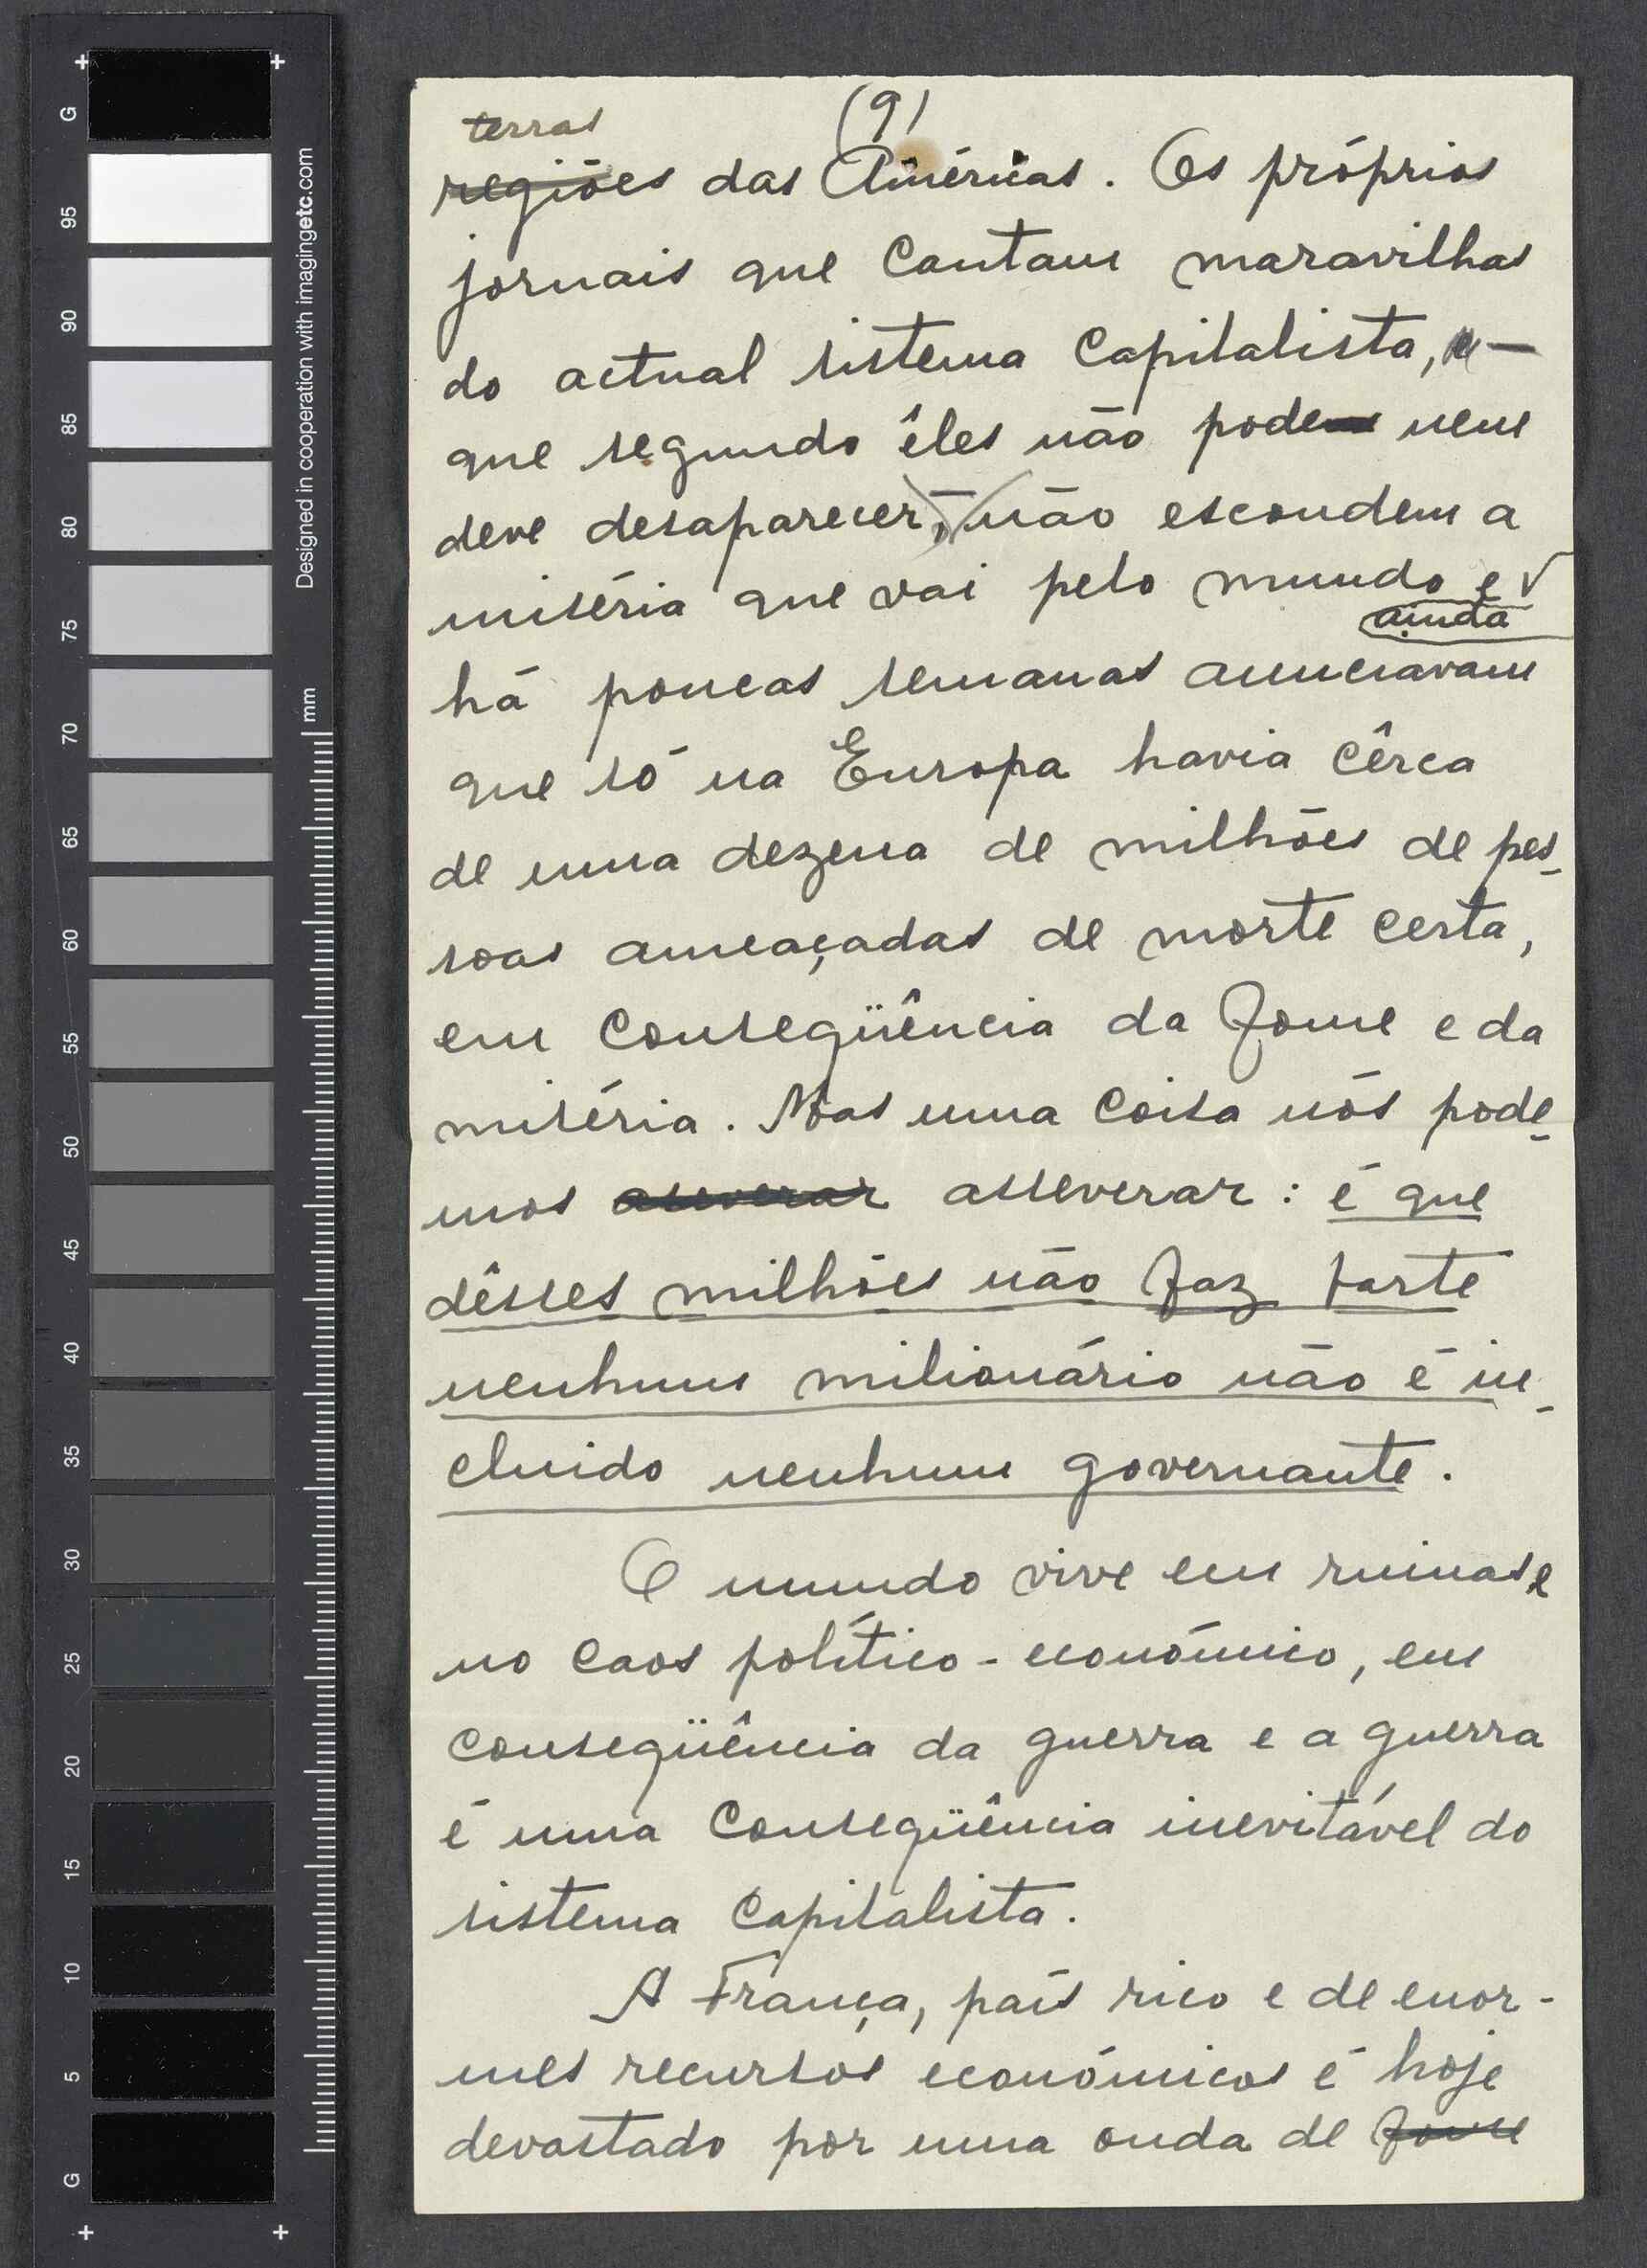 (9)
terras
regiões das Américas. Os próprios
jornais que cantam maravilhas
do actual sistema capitalista, —
que segundo êles não pode nem
deve desaparecer, — não escondem a
miséria que vai pelo mundo e
ainda
há poucas semanas anunciavam
que só na Europa havia cêrca
de uma dezena de milhões de pes-
soas ameaçadas de morte certa,
em conseqüência da fome e da
miséria. Mas uma coisa nós pode-
mos asseverar asseverar: é que
dêsses milhões não faz parte
nenhum milionário não é in-
cluido nenhum governante.
O mundo vive em ruinas e
no caos político-económico, em
conseqüência da guerra e a guerra
é uma conseqüência inevitável do
sistema capitalista.
A França, país rico e de enor-
mes recursos económicos é hoje
devastado por uma onda de fome
G
95
90
85
80
75
70
65
60
55
50
45
40
35
30
25
20
15
10
5
G
mm
Designed in cooperation with imagingetc.com